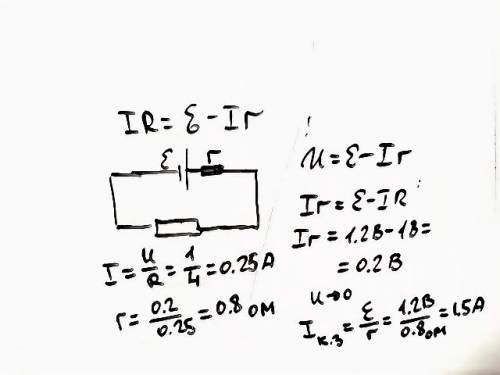 IR = ℰ - Ir
ℰ r
I = U/R = 1/4 = 0.25 A
r = 0.2/0.25 = 0.8 ом
U = ℰ - Ir
Ir = ℰ - IR
Ir = 1.2В - 1В =
= 0.2 В
U → 0
Iк.з = ℰ/r = 1.2В/0.8ом = 1.5А